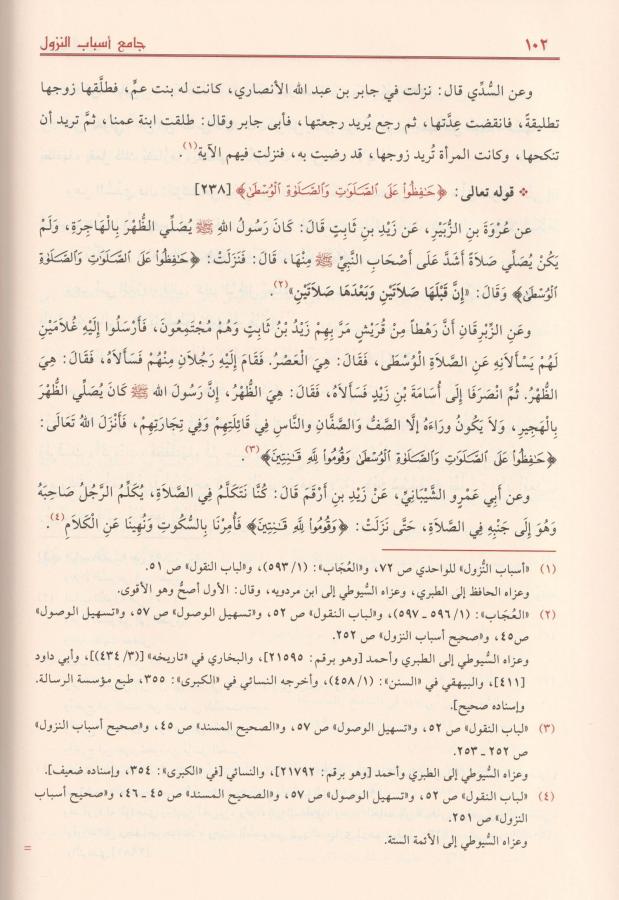 ١٠٢ جامع أسباب النزول
وعن السُّدِّي قال: نزلت في جابر بن عبد الله الأنصاري، كانت له بنت عمٍّ، فطلَّقها زوجها
تطليقةً، فانقضت عِدَّتها، ثم رجع يُريد رجعتها، فأبى جابر وقال: طلقت ابنة عمنا، ثمَّ تريد أن
تنكحها، وكانت المرأة تُريد زوجها، قد رضيت به، فنزلت فيهم الآية(١).
❖ قوله تعالى: ﴿حَٰفِظُوا۟ عَلَى ٱلصَّلَوَٰتِ وَٱلصَّلَوٰةِ ٱلْوُسْطَىٰ﴾ [٢٣٨]
عن عُرْوَةَ بنِ الزُّبَيْرِ، عَن زَيْدِ بنِ ثَابِتٍ قَالَ: كَانَ رَسُولُ اللهِ ﷺ يُصَلِّي الظُّهْرَ بِالْهَاجِرَةِ، وَلَمْ
يَكُنْ يُصَلِّي صَلاَةً أَشَدَّ عَلَى أَصْحَابِ النَّبِيِّ ﷺ مِنْهَا، قَالَ: فَنَزَلَتْ: ﴿حَٰفِظُوا۟ عَلَى ٱلصَّلَوَٰتِ وَٱلصَّلَوٰةِ
ٱلْوُسْطَىٰ﴾ وَقَالَ: «إِنَّ قَبْلَهَا صَلاَتَيْنِ وَبَعْدَهَا صَلاَتَيْنِ»(٢).
وعَنِ الزِّبْرِقَانِ أَنَّ رَهْطاً مِنْ قُرَيْشٍ مَرَّ بِهِمْ زَيْدُ بْنُ ثَابِتٍ وَهُمْ مُجْتَمِعُونَ، فَأَرْسَلُوا إِلَيْهِ غُلاَمَيْنِ
لَهُمْ يَسْأَلاَنِهِ عَنِ الصَّلاَةِ الْوُسْطَى، فَقَالَ: هِيَ الْعَصْرُ. فَقَامَ إِلَيْهِ رَجُلاَنِ مِنْهُمْ فَسَأَلاَهُ، فَقَالَ: هِيَ
الظُّهْرُ. ثُمَّ انْصَرَفَا إِلَى أُسَامَةَ بْنِ زَيْدٍ فَسَأَلاَهُ، فَقَالَ: هِيَ الظُّهْرُ، إِنَّ رَسُولَ اللهِ ﷺ كَانَ يُصَلِّي الظُّهْرَ
بِالْهَجِيرِ، وَلاَ يَكُونُ وَرَاءَهُ إِلَّا الصَّفُّ وَالصَّفَّانِ وَالنَّاسِ فِي قَائِلَتِهِمْ وَفِي تِجَارَتِهِمْ، فَأَنْزَلَ اللهُ تَعَالَى:
﴿حَٰفِظُوا۟ عَلَى ٱلصَّلَوَٰتِ وَٱلصَّلَوٰةِ ٱلْوُسْطَىٰ وَقُومُوا۟ لِلَّهِ قَٰنِتِينَ﴾(٣).
وعن أَبِي عَمْرٍو الشَّيْبَانِيِّ، عَنْ زَيْدِ بنِ أَرْقَمَ قَالَ: كُنَّا نَتَكَلَّمُ فِي الصَّلاَةِ، يُكَلِّمُ الرَّجُلُ صَاحِبَهُ
وَهُوَ إِلَى جَنْبِهِ فِي الصَّلاَةِ، حَتَّى نَزَلَتْ: ﴿وَقُومُوا۟ لِلَّهِ قَٰنِتِينَ﴾ فَأُمِرْنَا بِالسُّكُوتِ وَنُهِينَا عَنِ الْكَلاَمِ(٤).
(١) «أسباب النُّزول» للواحدي ص ٧٢، و«العُجَاب»: (١/ ٥٩٣)، و«لباب النقول» ص ٥١.
وعزاه الحافظ إلى الطبري، وعزاه السُّيوطي إلى ابن مردويه، وقال: الأول أصحُّ وهو الأقوى.
(٢) «العُجَاب»: (١/ ٥٩٦ ـ ٥٩٧)، و«لباب النقول» ص ٥٢، و«تسهيل الوصول» ص ٥٧، و«تسهيل الوصول»
ص٤٥، و«صحيح أسباب النزول» ص ٢٥٢.
وعزاه السُّيوطي إلى الطبري وأحمد [وهو برقم: ٢١٥٩٥]، والبخاري في «تاريخه» [(٣/ ٤٣٤)]، وأبي داود
[٤١١]، والبيهقي في «السنن»: (١/ ٤٥٨)، وأخرجه النسائي في «الكبرى»: ٣٥٥، طبع مؤسسة الرسالة.
وإسناده صحيح].
(٣) «لباب النقول» ص ٥٢، و«تسهيل الوصول» ص ٥٧، و«الصحيح المسند» ص ٤٥، و«صحيح أسباب النزول»
ص ٢٥٢ ـ ٢٥٣.
وعزاه السُّيوطي إلى الطبري وأحمد [وهو برقم: ٢١٧٩٢]، والنسائي [في «الكبرى»: ٣٥٤، وإسناده ضعيف].
(٤) «لباب النقول» ص ٥٢، و«تسهيل الوصول» ص ٥٧، و«الصحيح المسند» ص ٤٥ ـ ٤٦، و«صحيح أسباب
النزول» ص ٢٥١.
وعزاه السُّيوطي إلى الأئمة الستة.
=